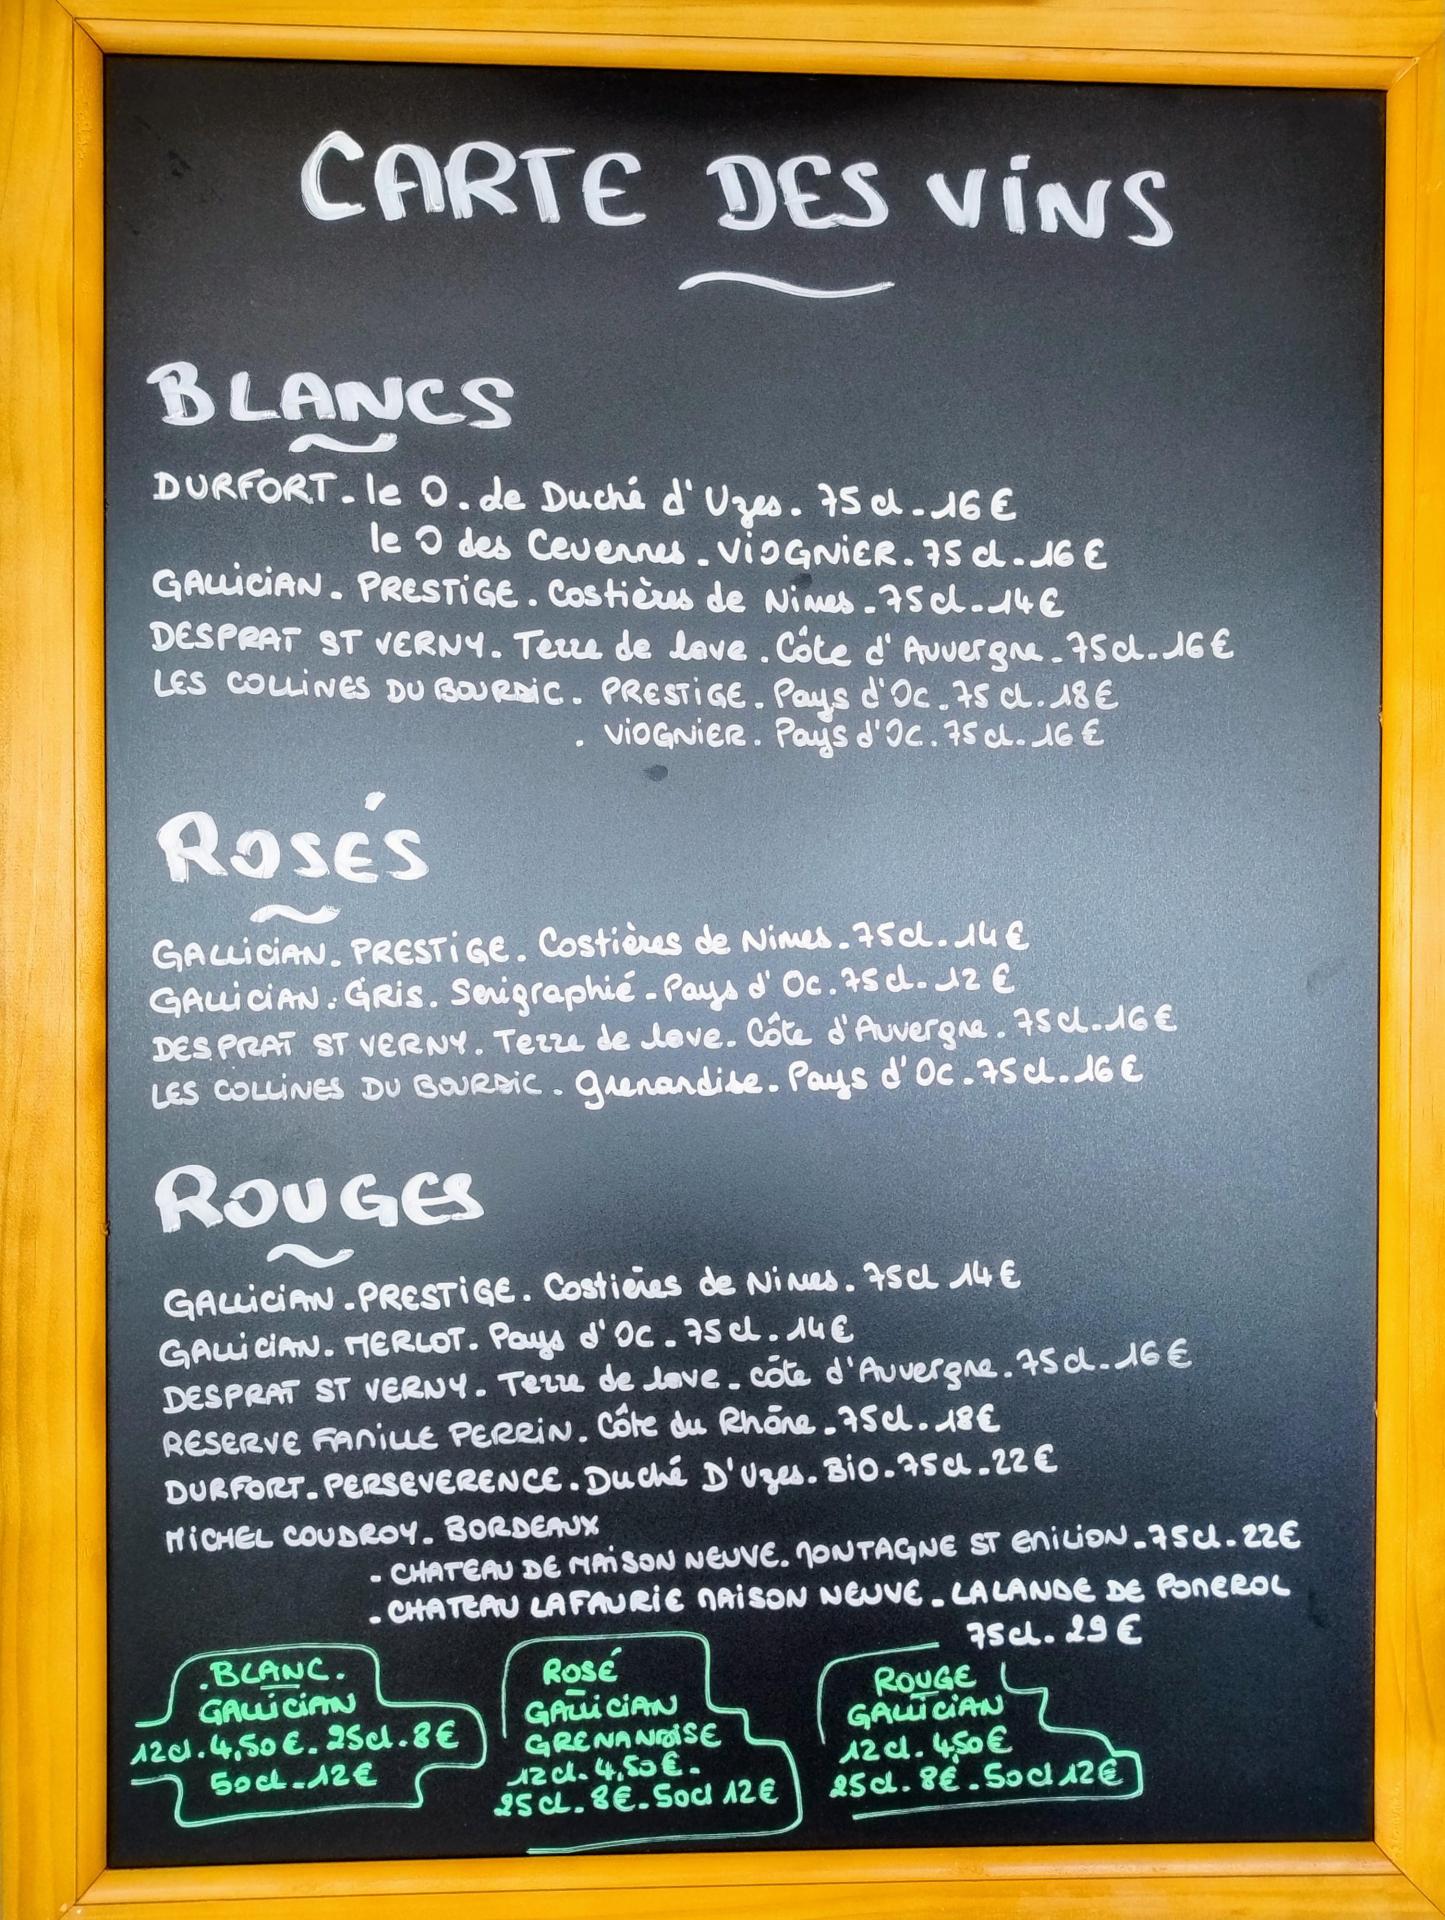 CARTE DES VINS
BLANCS
DURFORT. le O. de Duché d'Uzes. 75cl. 16€
le O des Cevennes. VIOGNIER. 75cl. 16€
GALLICIAN. PRESTIGE. Costières de Nimes. 75cl. 14€
DESPRAT ST VERNY. Terre de lave. Côte d'Auvergne. 75cl. 16€
LES COLLINES DU BOURDIC. PRESTIGE. Pays d'Oc. 75cl. 18€
. VIOGNIER. Pays d'Oc. 75cl. 16€
ROSÉS
GALLICIAN. PRESTIGE. Costières de Nimes. 75cl. 14€
GALLICIAN. GRIS. Serigraphié. Pays d'Oc. 75cl. 12€
DESPRAT ST VERNY. Terre de lave. Côte d'Auvergne. 75cl. 16€
LES COLLINES DU BOURDIC. grenandise. Pays d'Oc. 75cl. 16€
ROUGES
GALLICIAN. PRESTIGE. Costières de Nimes. 75cl 14€
GALLICIAN. MERLOT. Pays d'Oc. 75cl. 14€
DESPRAT ST VERNY. Terre de lave. côte d'Auvergne. 75cl. 16€
RESERVE FAMILLE PERRIN. Côte du Rhône. 75cl. 18€
DURFORT. PERSEVERENCE. Duché D'Uzes. Bio. 75cl. 22€
MICHEL COUDROY. BORDEAUX
- CHATEAU DE MAISON NEUVE. MONTAGNE ST EMILION. 75cl. 22€
- CHATEAU LAFAURIE MAISON NEUVE. LALANDE DE POMEROL
75cl. 29€
.BLANC.
GALLICIAN
12cl. 4,50€. 25cl. 8€
50cl. 12€
ROSÉ
GALLICIAN
GRENANDISE
12cl. 4,50€.
25cl. 8€. 50cl 12€
ROUGE
GALLICIAN
12cl. 4,50€
25cl. 8€. 50cl 12€